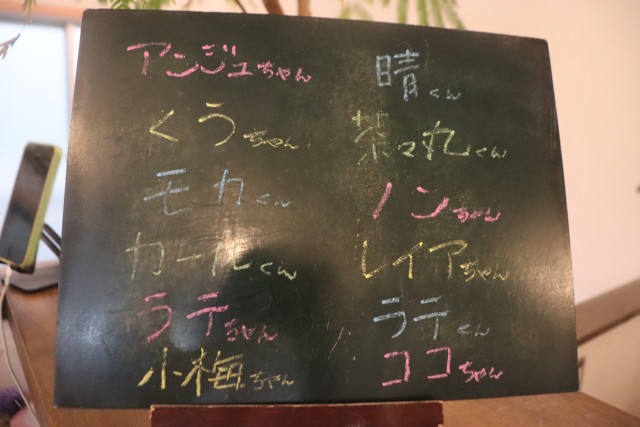 アンジュちゃん
くうちゃん
モカくん
カールくん
ラテちゃん
小梅ちゃん
晴くん
茶々丸くん
ノンちゃん
レイアちゃん
ラテくん
ココちゃん